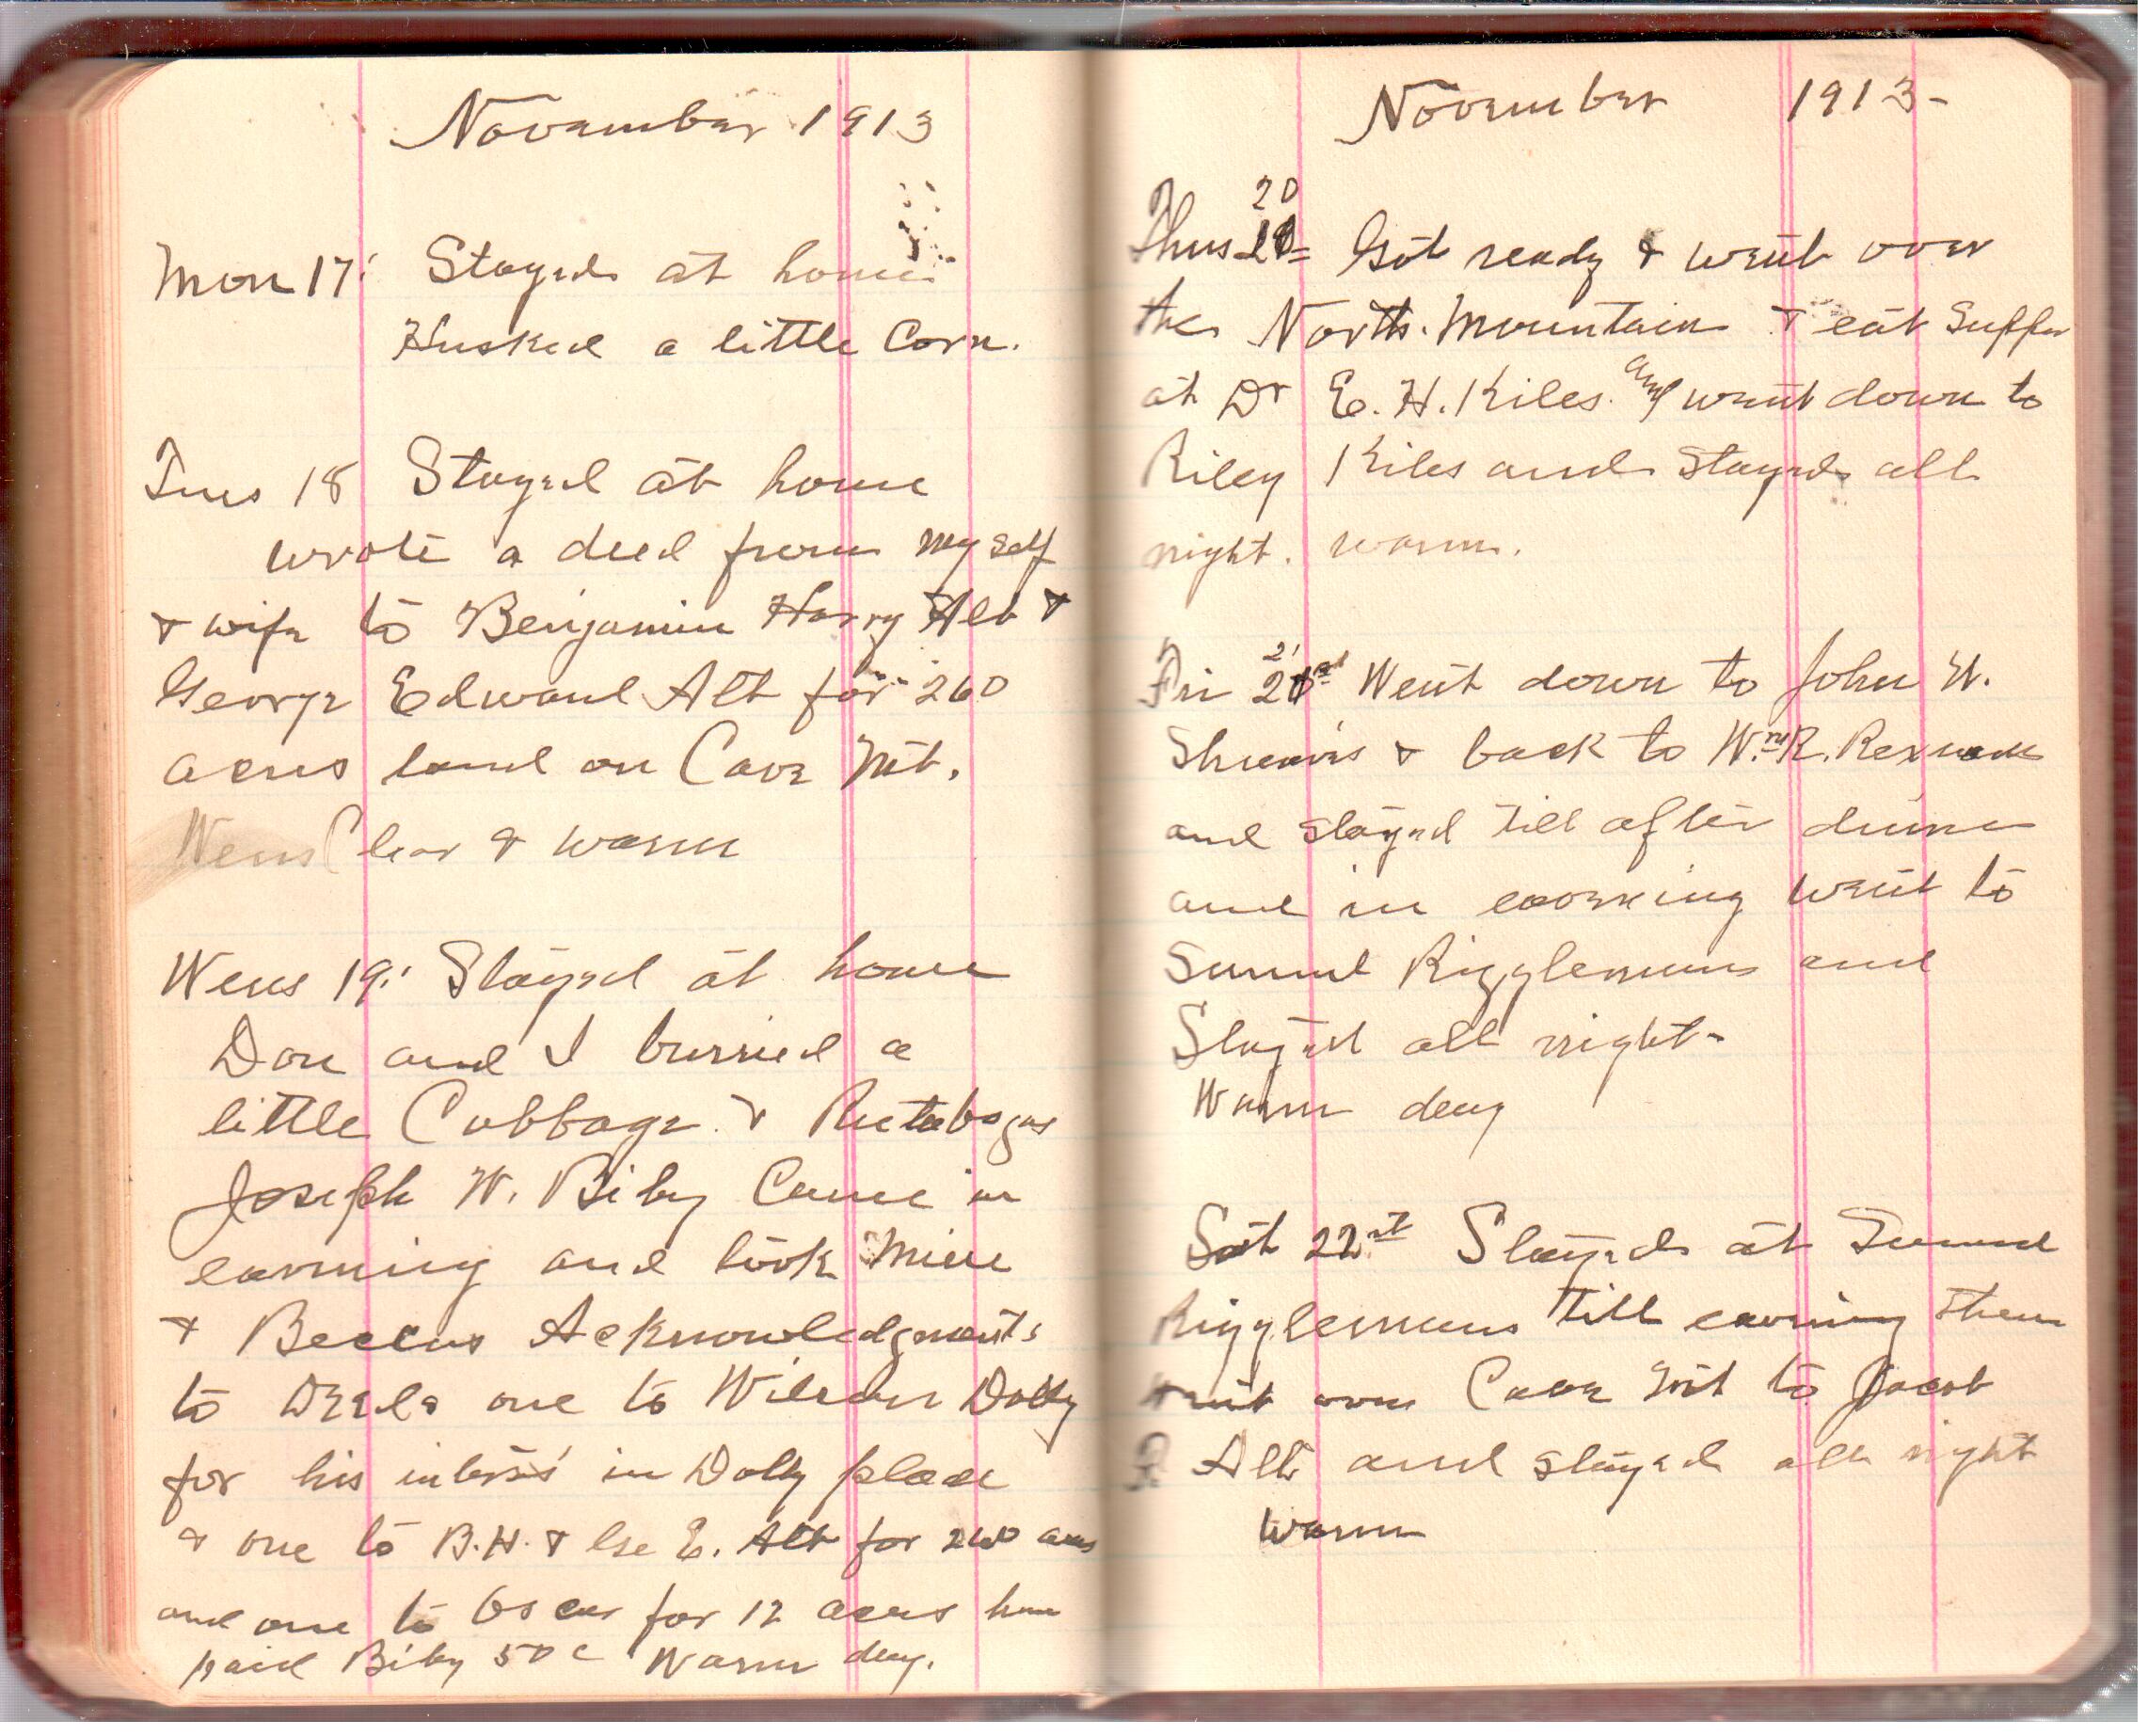 November 1913
Mon 17: Stayed at home
Husked a little Corn.
Tues 18 Stayed at home
wrote a deed from my self
& wife to Benjamin Harry Alt &
George Edward Alt for 260
acres land on Cave Mt.
Wens Clear & warm
Wens 19: Stayed at home
Don and I burried a
little Cabbage & Rutabogas
Joseph W. Biby Came in
eavning and took Mine
& Beccas Acknowledgments
to Deeds one to Wilson Dolly
for his in Dolly place
& one to B.H. & Geo E. Alt for 260 acres
and one to Oscar for 12 acres here
paid Biby 50 c Warm day.
November 1913-
20
Thus = Got ready & went over
the North. Mountain & eat Supper
at Dr E. H. Kiles. and went down to
Riley Kiles and stayed all
night. warm.
21
Fri Went down to John W.
& back to Wm R.
and stayed till after
and in went to
Rigglemans and
Stayed all night-
Warm day
Sat 22st Stayed at
Rigglemans till eavning then
went over Cave Mt to Jacob
Alt and stayed all night
warm